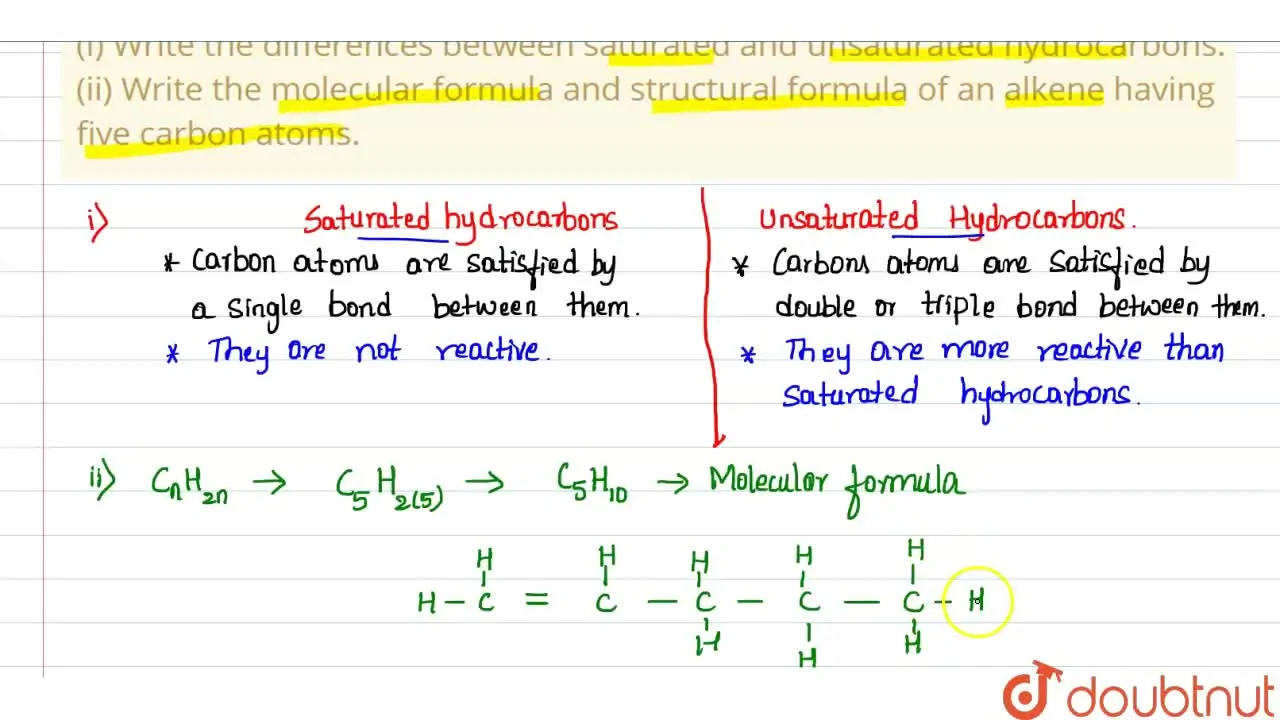 (i) Write the differences between saturated and unsaturated hydrocarbons.
(ii) Write the molecular formula and structural formula of an alkene having
five carbon atoms.
i) Saturated hydrocarbons
* Carbon atoms are satisfied by
a single bond between them.
* They are not reactive.
Unsaturated Hydrocarbons.
* Carbons atoms are satisfied by
double or triple bond between them.
* They are more reactive than
saturated hydrocarbons.
ii) CnH2n → C5H2(5) → C5H10 → Molecular formula
H H H H H
H - C = C - C - C - C - H
H H H
doubtnut